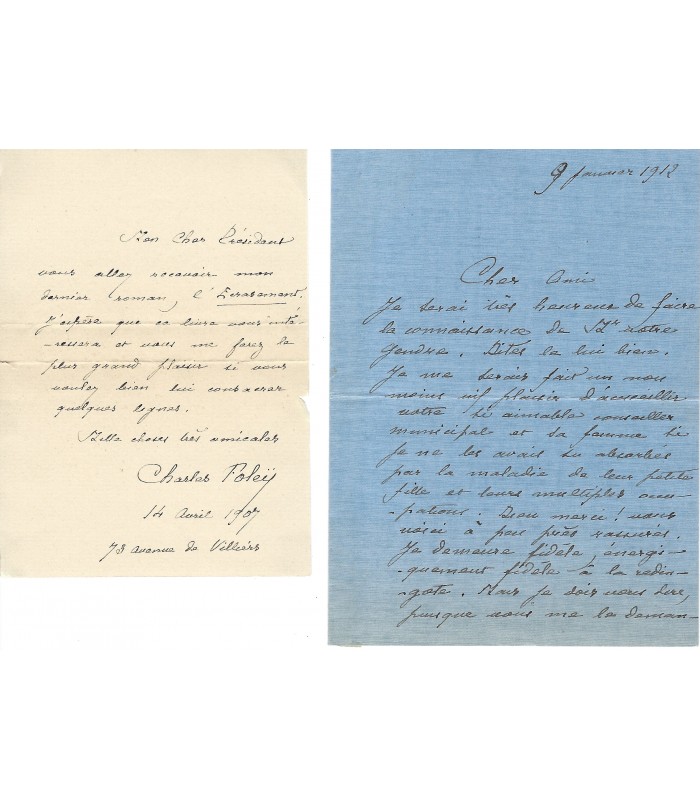 Mon Cher Président
vous allez recevoir mon
dernier roman, l'Ecrasement.
J'espère que ce livre vous inté-
-ressera et vous me ferez le
plus grand plaisir si vous
voulez bien lui consacrer
quelques lignes.
Mille choses très amicales
Charles Foleÿ
14 Avril 1907
78 avenue de Villiers
9 Janvier 1912
Cher Ami
Je serai très heureux de faire
la connaissance de Mr votre
gendre. Dites le lui bien.
Je me serais fait un non
moins vif plaisir d'accueillir
votre si aimable conseiller
municipal et sa femme si
je ne les avais su absorbés
par la maladie de leur petite
fille et leurs multiples occu-
-pations. Dieu merci! vous
voici à peu près rassurés.
Je demeure fidèle, énergi-
-quement fidèle à la redin-
-gote. Mais je dois vous dire,
puisque vous me le deman-